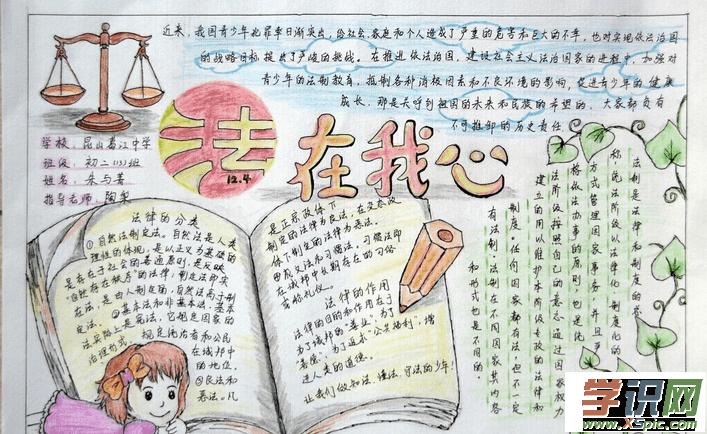 近来，我国青少年犯罪率日渐突出，给社会、家庭和个人造成了严重的危害和巨大的不幸，也对实现依法治国
的战略目标提出了严峻的挑战。在推进依法治国，建设社会主义法治国家的进程中，加强对
青少年的法制教育，抵制各种消极因素和不良环境的影响，促进青少年的健康
成长，那是关乎到祖国的未来和民族的希望的，大家都负有
不可推卸的历史责任。
学校：昆山葛江中学
班级：初二(13)班
姓名：朱与菁
指导老师：陶梨
法
12.4
在我心
法律的分类
①自然法制定法。自然法是人类
理性的体现，是以正义为基础的
是存在于社会的普通原则，是反映
"自然存在秩序"的法律，制定法即实
在法，是由人制定的，自然法高于制
定法。②基本法和非基本法。基本
法实际上是宪法，它规定国家的
治理形式，规定统治者和公民
在城邦中
的地位。
③良法和
恶法。凡
是正宗政体下
制定的法律为良法，在变态政
体下制定的法律为恶法。
④成文法和习惯法。习惯法即
在城邦中长期存在的习俗
或称礼仪。
法律的作用
法律的目的和作用在于
为了城邦的"善业"，为了
"善德"，为了追求"公共福利"，增
进人类的道德。
让我们做知法、懂法、守法的少年！
法制是法律和制度的总
称。统治阶级以法律化、制度化的
方式管理国家事务，并且严
格依法办事的原则。也是统
治阶级按照自己的意志通过国家权力
建立的用以维护本阶级专政的法律和
制度。任何国家都有法，但不一定
有法制。法制在不同国家其内容
和形式也是不同的。
学识网
www.XSpic.com